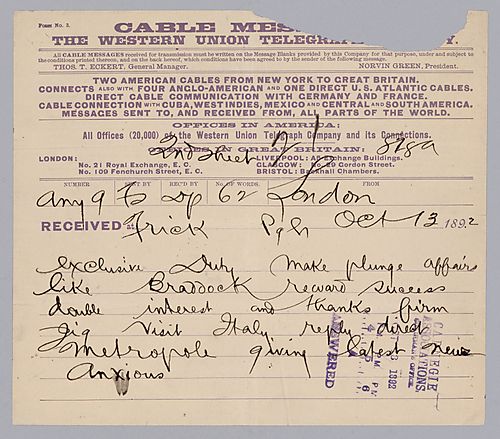 Form No. 2.
CABLE MES
THE WESTERN UNION TELEGRA Y.
All CABLE MESSAGES received for transmission must be written on the Message Blanks provided by this Company for that purpose, under and subject to
the conditions printed thereon, and on the back hereof, which conditions have been agreed to by the sender of the following message.
THOS. T. ECKERT, General Manager. NORVIN GREEN, President.
TWO AMERICAN CABLES FROM NEW YORK TO GREAT BRITAIN.
CONNECTS ALSO WITH FOUR ANGLO-AMERICAN AND ONE DIRECT U.S. ATLANTIC CABLES.
DIRECT CABLE COMMUNICATION WITH GERMANY AND FRANCE.
CABLE CONNECTION WITH CUBA, WEST INDIES, MEXICO AND CENTRAL AND SOUTH AMERICA.
MESSAGES SENT TO, AND RECEIVED FROM, ALL PARTS OF THE WORLD.
OFFICES IN AMERICA:
All Offices (20,000) of the Western Union Telegraph Company and its Connections.
OFFICES IN GREAT BRITAIN:
2nd Sheet
LONDON: LIVERPOOL: A5 Exchange Buildings.
No. 21 Royal Exchange, E. C. GLASGOW: No. 29 Gordon Street.
No. 109 Fenchurch Street, E. C. BRISTOL: Backhall Chambers.
NUMBER SENT BY REC'D BY NO. OF WORDS. FROM
any 9 62 London
RECEIVED at Oct 13 1892
Frick Pgh
exclusive Duty make plunge affairs
like Braddock reward success
double interest and thanks firm
jig visit Italy return direct
Metropole giving latest news
Anxious
CARNEGIE
ASSOCIATIONS,
CHAIRMAN'S OFFICE.
1892
ANSWERED